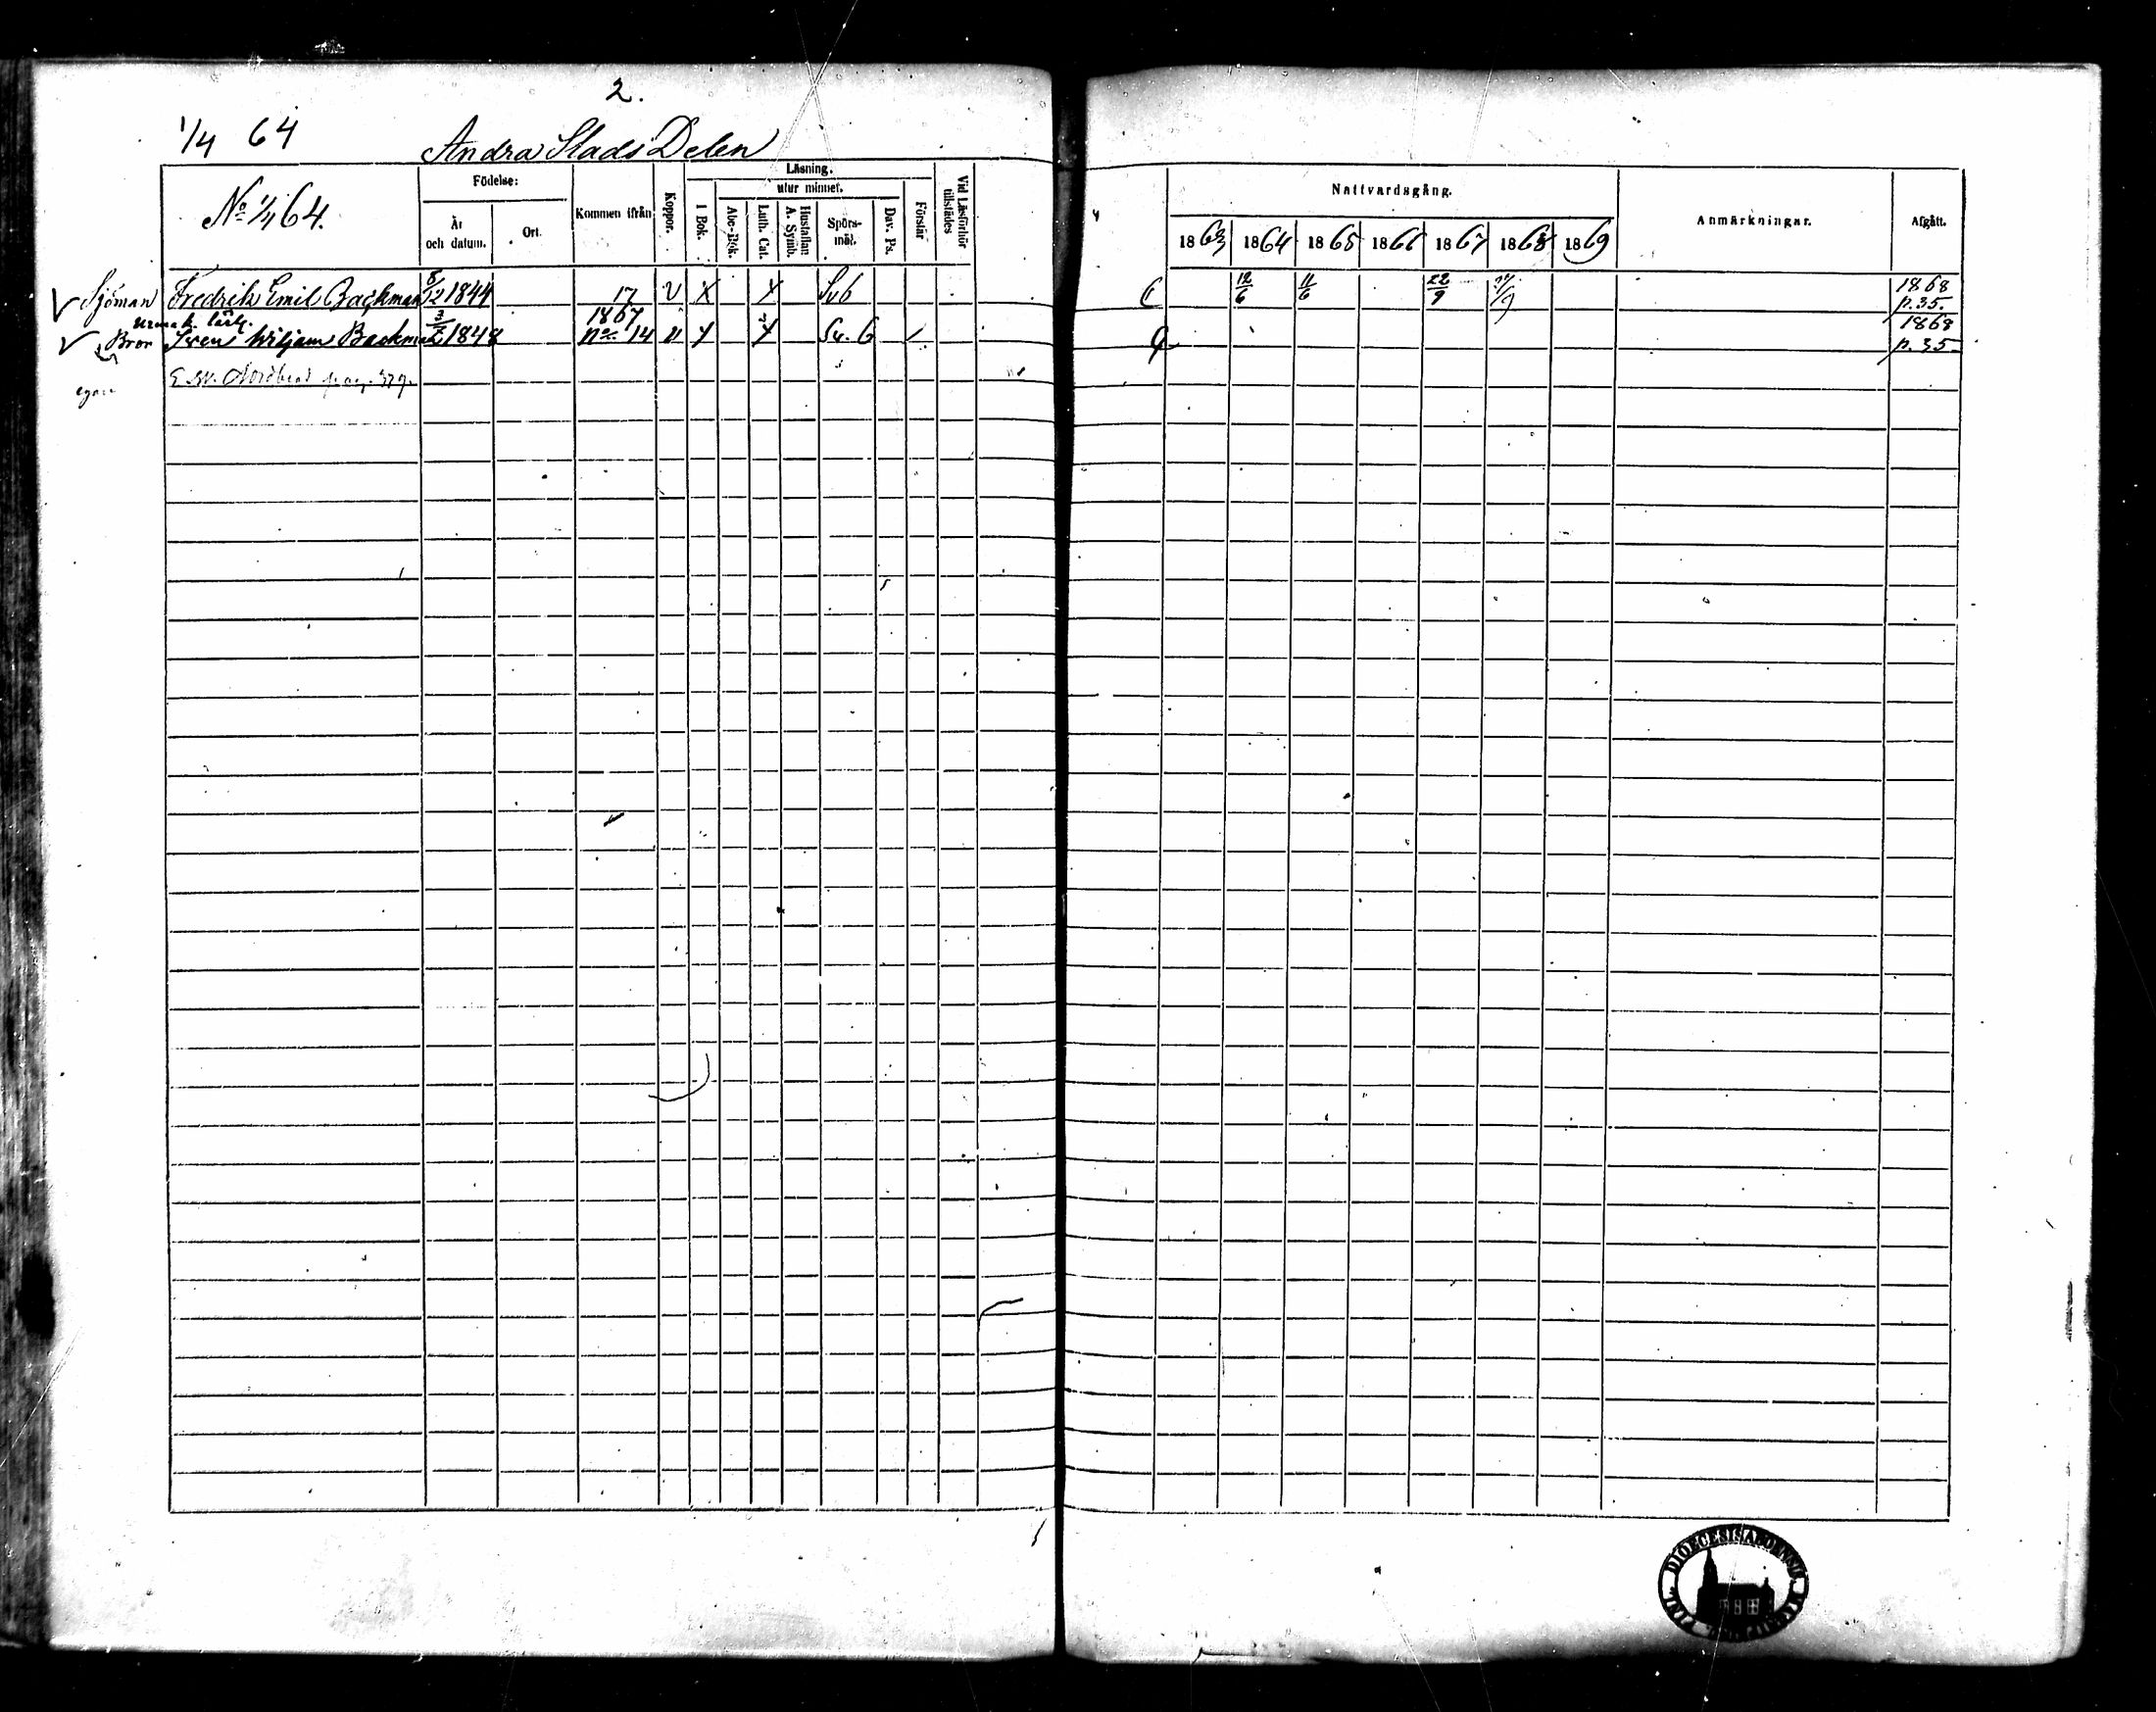 2.
1/4 64
Andra Stads Delen
No 1/4 64.
Födelse:
År och datum.
Ort.
Kommen ifrån
Koppor.
Läsning.
I Bok.
utur minnet.
Abc-Bok.
Luth. Cat.
Hustaflan A. Symb.
Spörs-mål.
Dav. Ps.
Förstår
Vid Läsförhör tillstädes
Nattvardsgång.
1863 1864 1865 1866 1867 1868 1869
Anmärkningar.
Afgått.
Sjöman Fredrik Emil Backman 8/12 1844 17 v X X Svb 12/6 11/6 22/9 1868 p.35.
urmak. lärl.
Bror Sven Wiljam Backman 3/7 1848 1867 No 14 v Sv. 6 1868 p.35
egare Nordberg pag. 379.